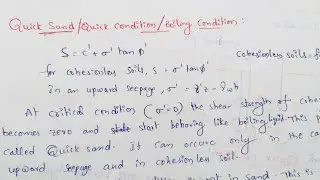 Quick Sand/Quick Condition/Boiling Condition:
S = c' + σ' tan φ'
cohesionless soils = f
for cohesionless soils, S = σ' tan φ'
in an upward seepage, σ' = γ'z - γωh
At critical condition (σ'=0) the shear strength of cohes
becomes zero and start behaving like boiling This p
called Quick sand. It can occure only in the ca
upward seepage and in cohesionless soil.
in sand. This is